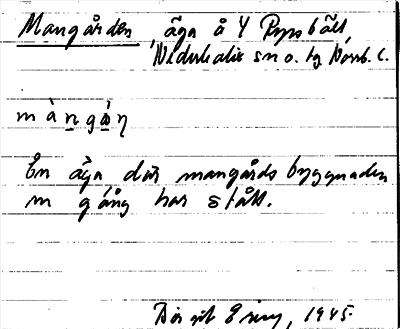 Mangården, äga å Y Rysbält,
Nederkalix sn o. tg Norrb. l.
màngàṇ
En äga där mangårdsbyggnaden
en gång har stått.
Birgit Ering, 1945.